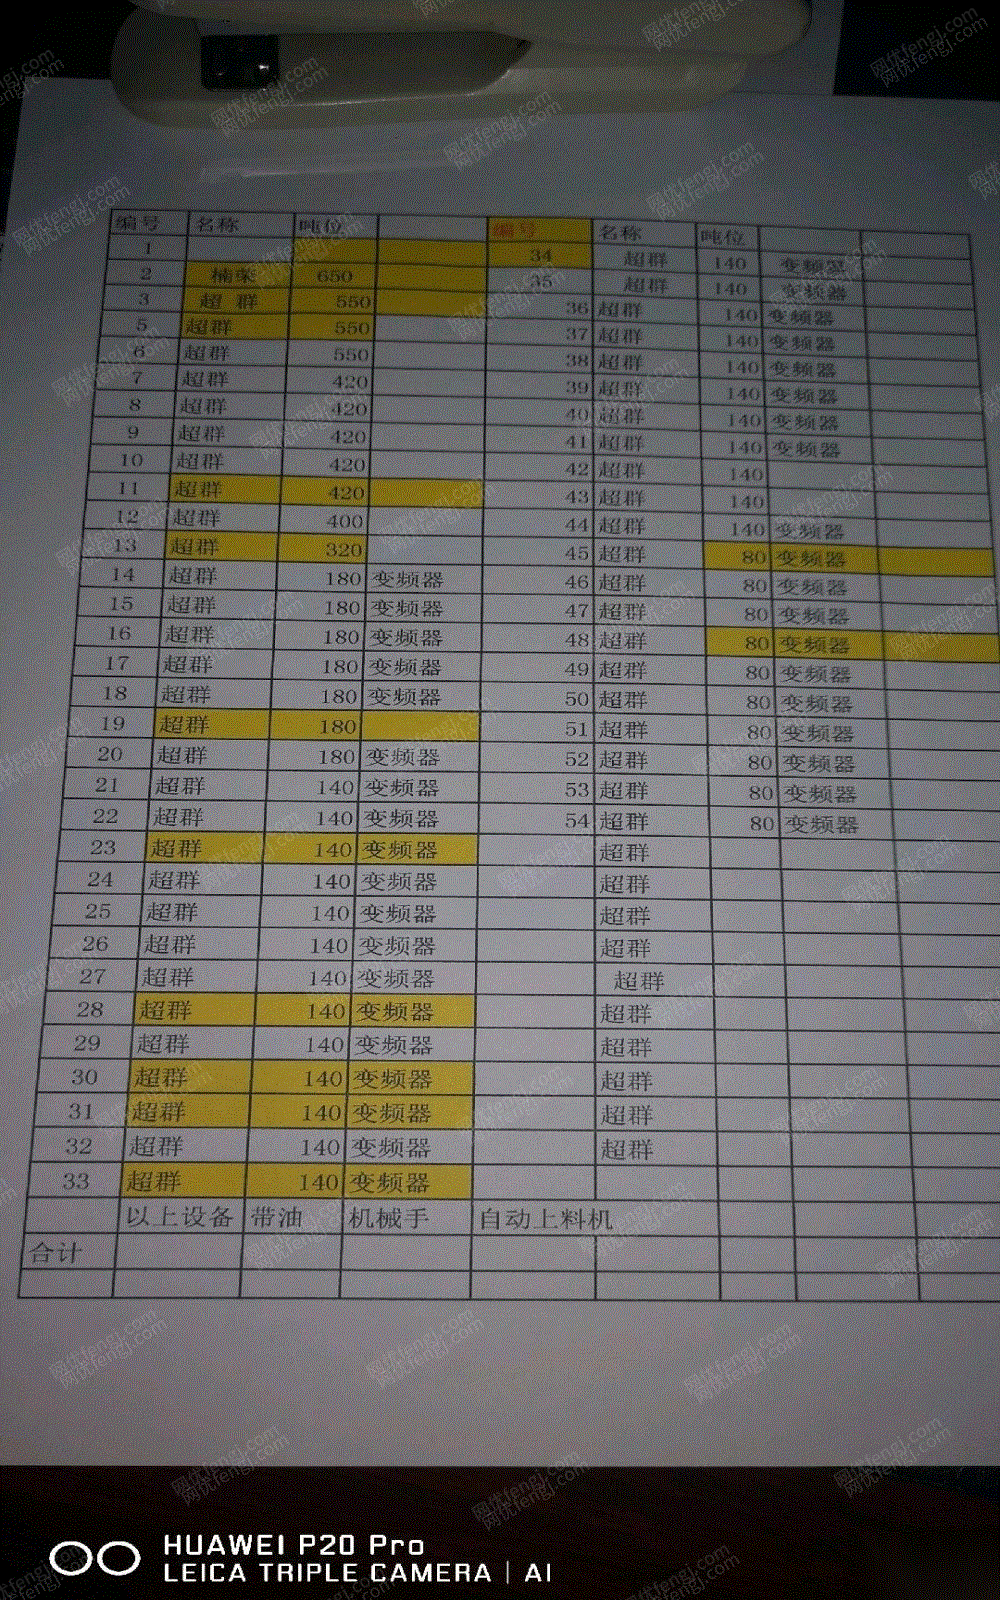 编号 名称 吨位 编号 名称 吨位
1 34 超群 140 变频器
2 楠荣 650 35 超群 140 变频器
3 超 群 550 36 超群 140 变频器
5 超群 550 37 超群 140 变频器
6 超群 550 38 超群 140 变频器
7 超群 420 39 超群 140 变频器
8 超群 420 40 超群 140 变频器
9 超群 420 41 超群 140 变频器
10 超群 420 42 超群 140
11 超群 420 43 超群 140
12 超群 400 44 超群 140 变频器
13 超群 320 45 超群 80 变频器
14 超群 180 变频器 46 超群 80 变频器
15 超群 180 变频器 47 超群 80 变频器
16 超群 180 变频器 48 超群 80 变频器
17 超群 180 变频器 49 超群 80 变频器
18 超群 180 变频器 50 超群 80 变频器
19 超群 180 51 超群 80 变频器
20 超群 180 变频器 52 超群 80 变频器
21 超群 140 变频器 53 超群 80 变频器
22 超群 140 变频器 54 超群 80 变频器
23 超群 140 变频器 超群
24 超群 140 变频器 超群
25 超群 140 变频器 超群
26 超群 140 变频器 超群
27 超群 140 变频器 超群
28 超群 140 变频器 超群
29 超群 140 变频器 超群
30 超群 140 变频器 超群
31 超群 140 变频器 超群
32 超群 140 变频器 超群
33 超群 140 变频器
以上设备 带油 机械手 自动上料机
合计
HUAWEI P20 Pro
LEICA TRIPLE CAMERA | AI
网优fengj.com